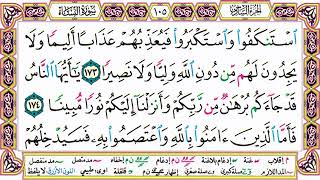 سورة النساء ١٠٥ الجزء السادس
ٱسۡتَنكَفُواْ وَٱسۡتَكۡبَرُواْ فَيُعَذِّبُهُمۡ عَذَابًا أَلِيمٗا وَلَا
يَجِدُونَ لَهُم مِّن دُونِ ٱللَّهِ وَلِيّٗا وَلَا نَصِيرٗا ١٧٣ يَٰٓأَيُّهَا ٱلنَّاسُ
قَدۡ جَآءَكُم بُرۡهَٰنٞ مِّن رَّبِّكُمۡ وَأَنزَلۡنَآ إِلَيۡكُمۡ نُورٗا مُّبِينٗا ١٧٤
فَأَمَّا ٱلَّذِينَ ءَامَنُواْ بِٱللَّهِ وَٱعۡتَصَمُواْ بِهِۦ فَسَيُدۡخِلُهُمۡ